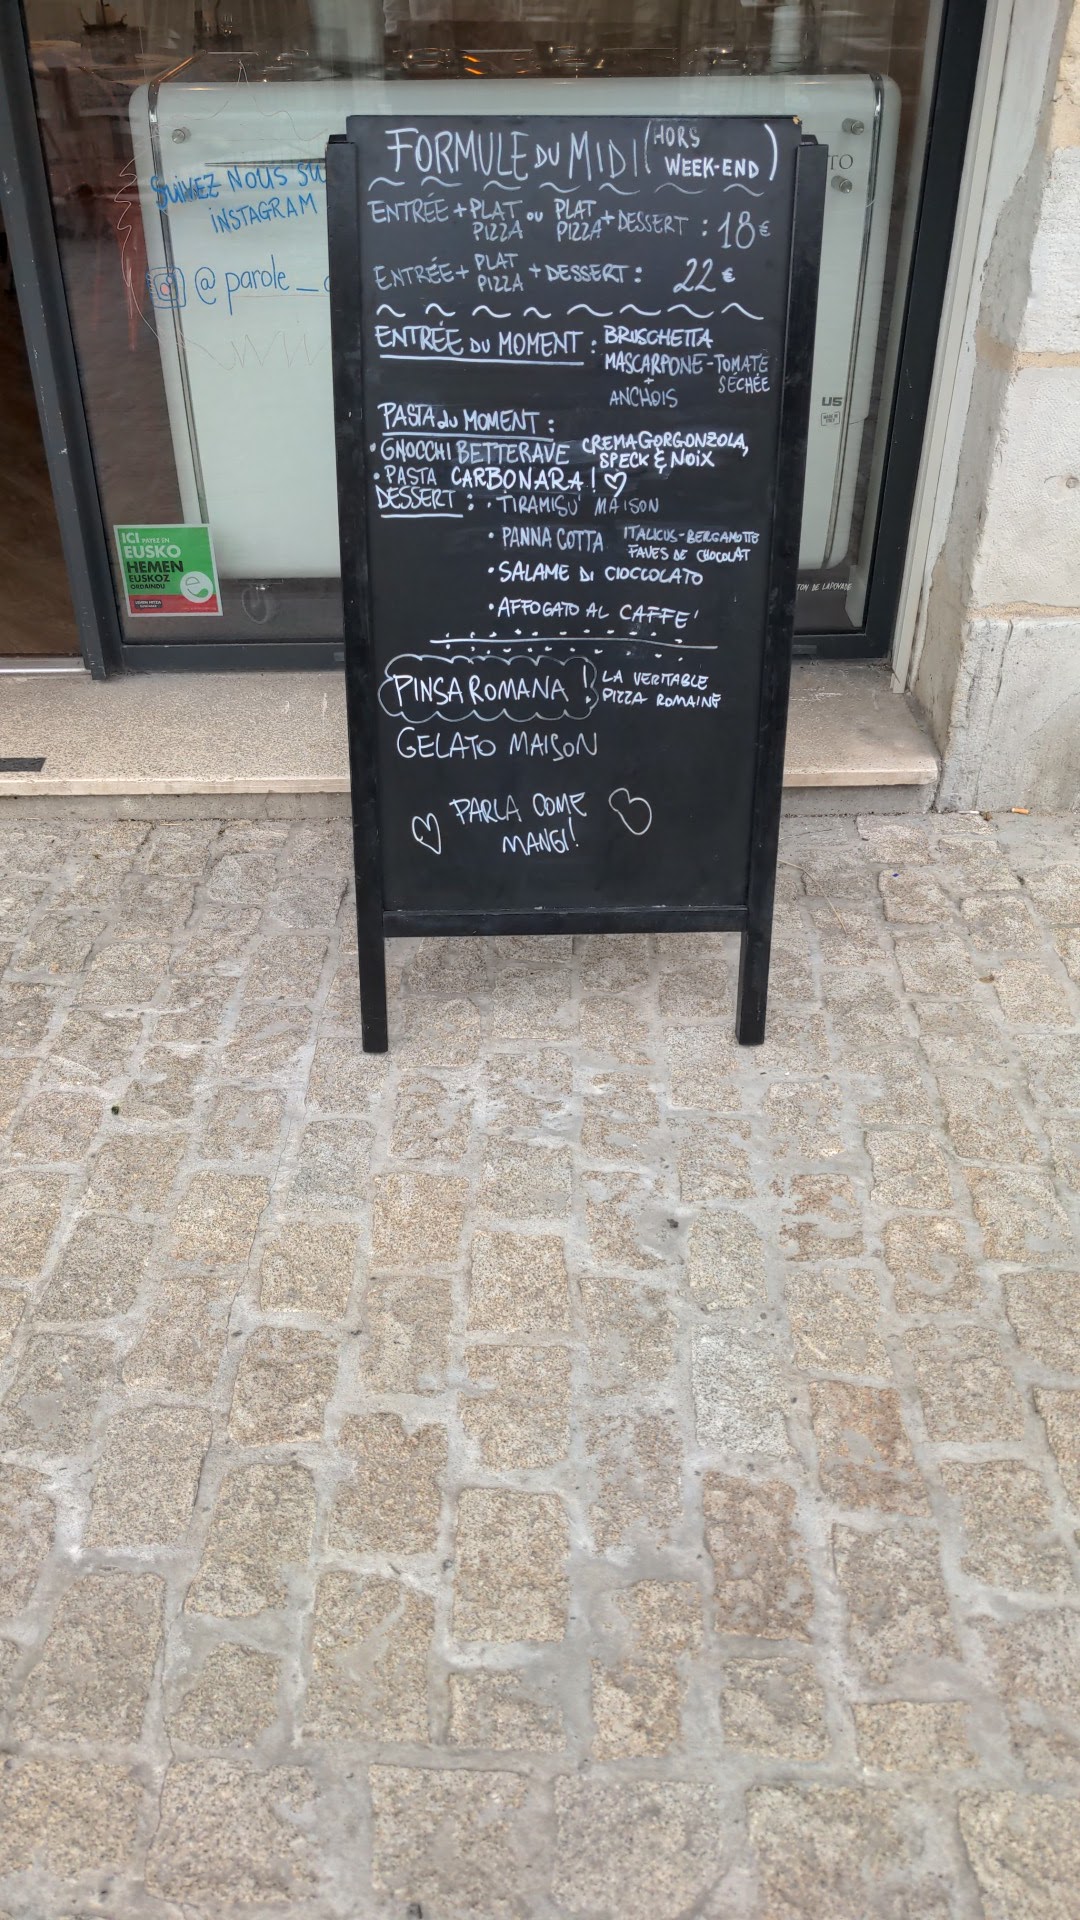 FORMULE DU MIDI (HORS WEEK-END)
ENTRÉE + PLAT PIZZA ou PLAT PIZZA + DESSERT : 18€
ENTRÉE + PLAT PIZZA + DESSERT : 22€
ENTRÉE DU MOMENT : BRUSCHETTA
MASCARPONE - TOMATE SÉCHÉE
+
ANCHOIS
PASTA du MOMENT :
• GNOCCHI BETTERAVE CREMA GORGONZOLA,
SPECK & NOIX
• PASTA CARBONARA !
DESSERT : • TIRAMISU' MAISON
• PANNA COTTA ITALICUS-BERGAMOTTE
FAVES DE CHOCOLAT
• SALAME DI CIOCCOLATO
• AFFOGATO AL CAFFE'
PINSA ROMANA ! LA VERITABLE
PIZZA ROMAINE
GELATO MAISON
PARLA COME
MANGI!
SUIVEZ NOUS SU
INSTAGRAM
@parole_
ICI PAYEZ EN
EUSKO
HEMEN
EUSKOZ
ORDAINDU
TO
US
TON DE LAPOVADE